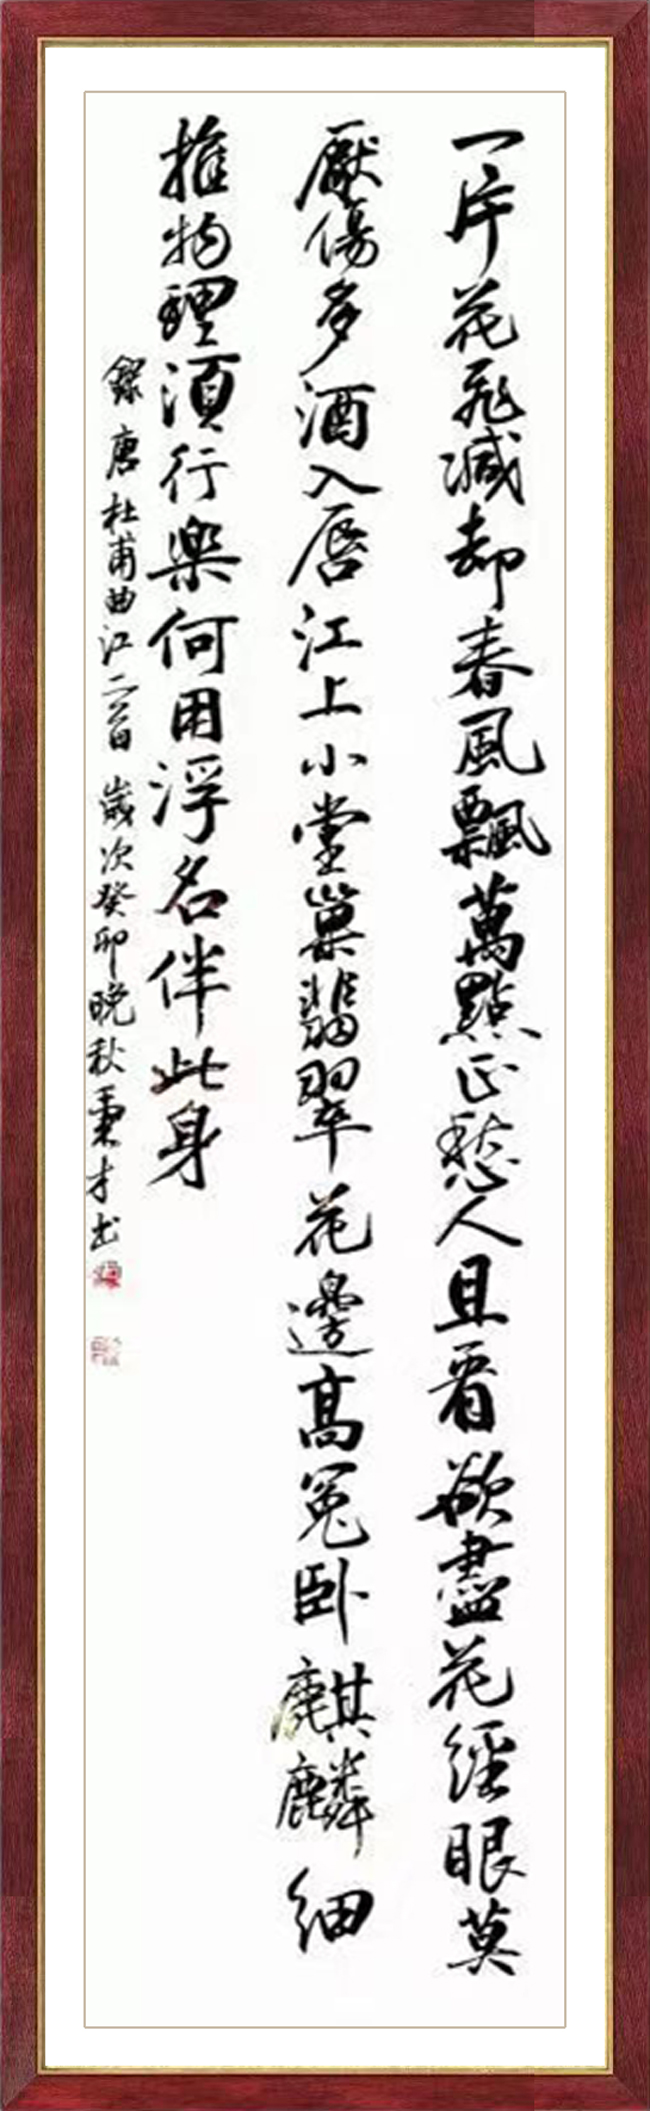 一片花飛減却春風飄萬點正愁人且看欲盡花經眼莫
厭傷多酒入唇江上小堂巢翡翠花邊高冢卧麒麟細
推物理須行樂何用浮名伴此身
錄唐杜甫曲江二首 歲次癸卯晚秋秉才书